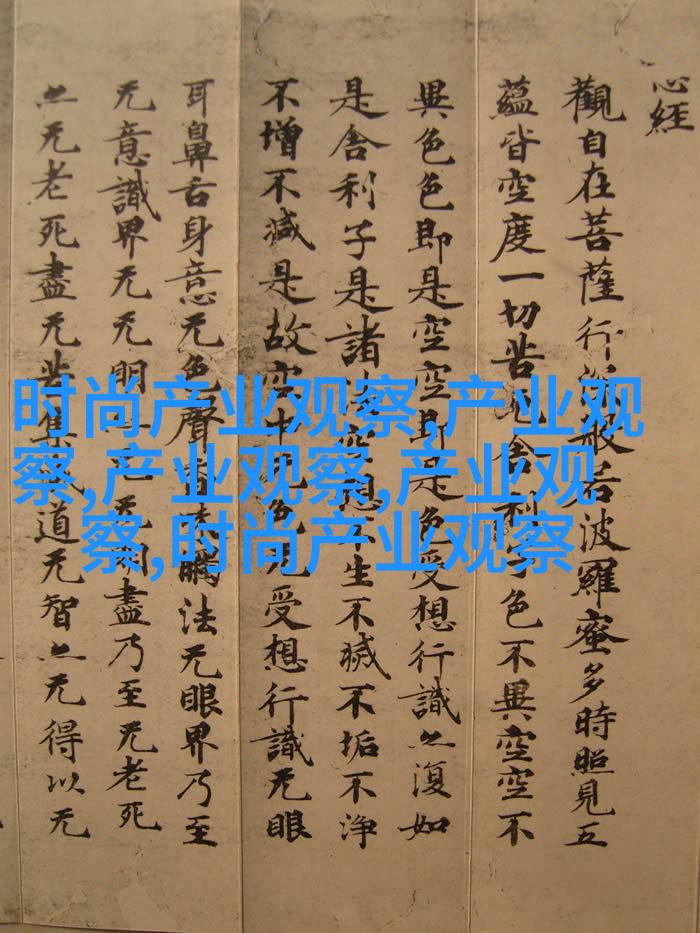 心経
觀自在菩薩行深般若波羅蜜多時照見五
蘊皆空度一切苦厄舍利子色不異空空不
異色色即是空空即是色受想行識亦復如
是舍利子是諸法空想不生不滅不垢不浄
不增不減是故空中无色无受想行識无眼
耳鼻舌身意无色聲香味觸法无眼界乃至
无意識界无无明亦无无明盡乃至无老死
亦无老死盡无苦集滅道无智亦无得以无
时尚产业观察,产业观
察,产业观察,产业观
察,时尚产业观察